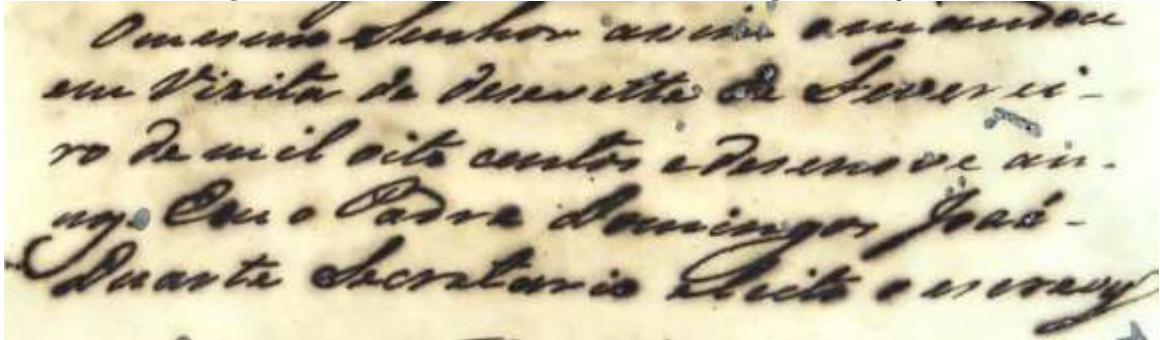 O mesmo Senhor assim o mandou
em Visita de desesette de Feverei-
ro de mil oito centos e desenove an-
nos. Eu o Padre Domingos José
Duarte Secretario eleito o escrevy